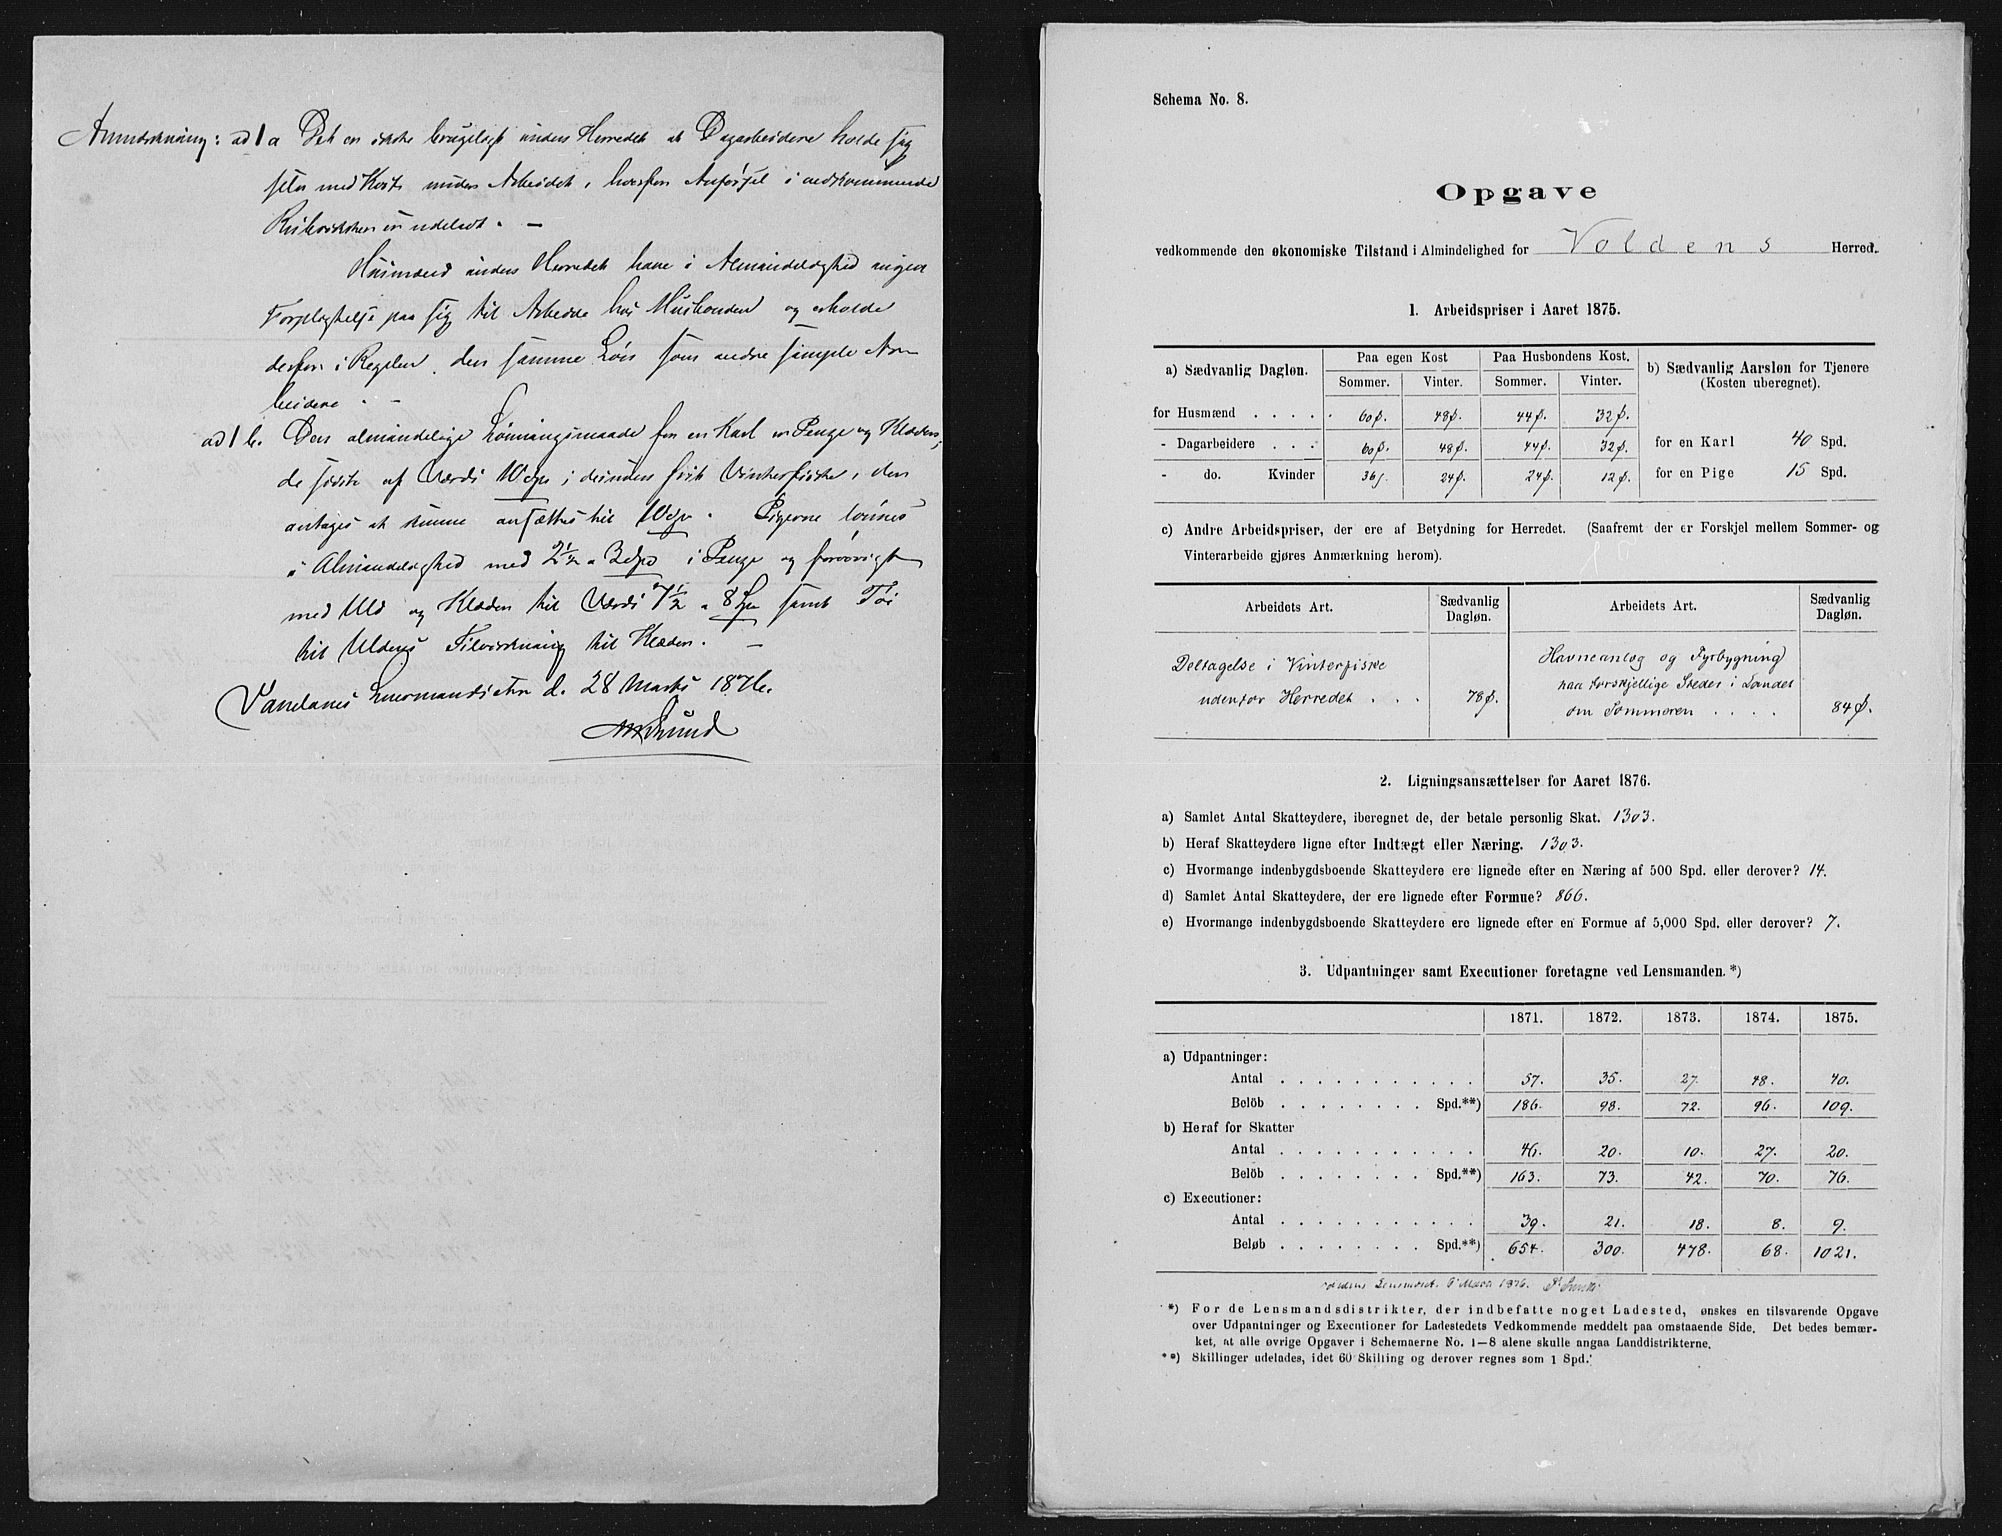 Anmærkning: ad 1 a Det er ikke brugeligt inden Herredet at Dagarbeidere holde sig
selv med Kost under Arbeidet, hvorfor Anførsel i vedkommende
Rubrikker er udeladt. —
Husmænd inden Herredet have i Almindelighed ingen
Forpligtelse paa sig til Arbeide hos Husbonden og erholde
derfor i Regelen den samme Løn som andre simple Ar-
beidere. –
ad 1 b. Den almindelige Lønningsmaade for en Karl er Penge og Klæder,
de sidste af Værdi desuden frit Vinterfiske, der
antages at kunne ansættes til Pigerne lønnes
i Almindelighed med 2½ a 3 i Penge og forøvrigt
med Uld og Klæder til Værdi 7½ a 8 samt Tøi
til Uldens Tilvirkning til Klæder. —
d. 28 Marts 1876.
Schema No. 8.
Opgave
vedkommende den økonomiske Tilstand i Almindelighed for Voldens Herred.
1. Arbeidspriser i Aaret 1875.
a) Sædvanlig Dagløn. Paa egen Kost Paa Husbondens Kost. b) Sædvanlig Aarsløn for Tjenere
Sommer. Vinter. Sommer. Vinter. (Kosten uberegnet).
for Husmænd . . . . . 60 β. 48 β. 44 β. 32 β.
- Dagarbeidere . . . 60 β. 48 β. 44 β. 32 β. for en Karl 40 Spd.
- do. Kvinder 36 β. 24 β. 24 β. 12 β. for en Pige 15 Spd.
c) Andre Arbeidspriser, der ere af Betydning for Herredet. (Saafremt der er Forskjel mellem Sommer- og
Vinterarbeide gjøres Anmærkning herom).
Arbeidets Art. Sædvanlig Dagløn. Arbeidets Art. Sædvanlig Dagløn.
Deltagelse i Vinterfiske Havneanlæg og Fyrbygning
udenfor Herredet . . . 78 β. paa forskjellige Steder i Landet
om Sommeren . . . . 84 β.
2. Ligningsansættelser for Aaret 1876.
a) Samlet Antal Skatteydere, iberegnet de, der betale personlig Skat. 1303.
b) Heraf Skatteydere ligne efter Indtægt eller Næring. 1303.
c) Hvormange indenbygdsboende Skatteydere ere lignede efter en Næring af 500 Spd. eller derover? 14.
d) Samlet Antal Skatteydere, der ere lignede efter Formue? 866.
e) Hvormange indenbygdsboende Skatteydere ere lignede efter en Formue af 5,000 Spd. eller derover? 7.
3. Udpantninger samt Executioner foretagne ved Lensmanden.*)
1871. 1872. 1873. 1874. 1875.
a) Udpantninger:
Antal . . . . . . . . . . . 57. 35. 27. 48. 40.
Beløb . . . . . . . . Spd.**) 186. 98. 72. 96. 109.
b) Heraf for Skatter
Antal . . . . . . . . . . . 46. 20. 10. 27. 20.
Beløb . . . . . . . . Spd.**) 163. 73. 42. 70. 76.
c) Executioner:
Antal . . . . . . . . . . . 39. 21. 18. 8. 9.
Beløb . . . . . . . . Spd.**) 654. 300. 478. 68. 1021.
Voldens 1876.
*) For de Lensmandsdistrikter, der indbefatte noget Ladested, ønskes en tilsvarende Opgave
over Udpantninger og Executioner for Ladestedets Vedkommende meddelt paa omstaaende Side. Det bedes bemær-
ket, at alle øvrige Opgaver i Schemaerne No. 1—8 alene skulle angaa Landdistrikterne.
**) Skillinger udelades, idet 60 Skilling og derover regnes som 1 Spd.